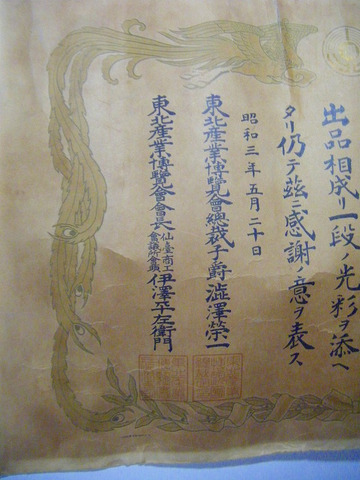 出品相成リ一段ノ光彩ヲ添ヘ
タリ仍テ茲ニ感謝ノ意ヲ表ス
昭和三年五月二十日
東北産業博覽會總裁子爵澁澤榮一
東北産業博覽會會長仙臺商工會議所會頭伊澤平左衛門